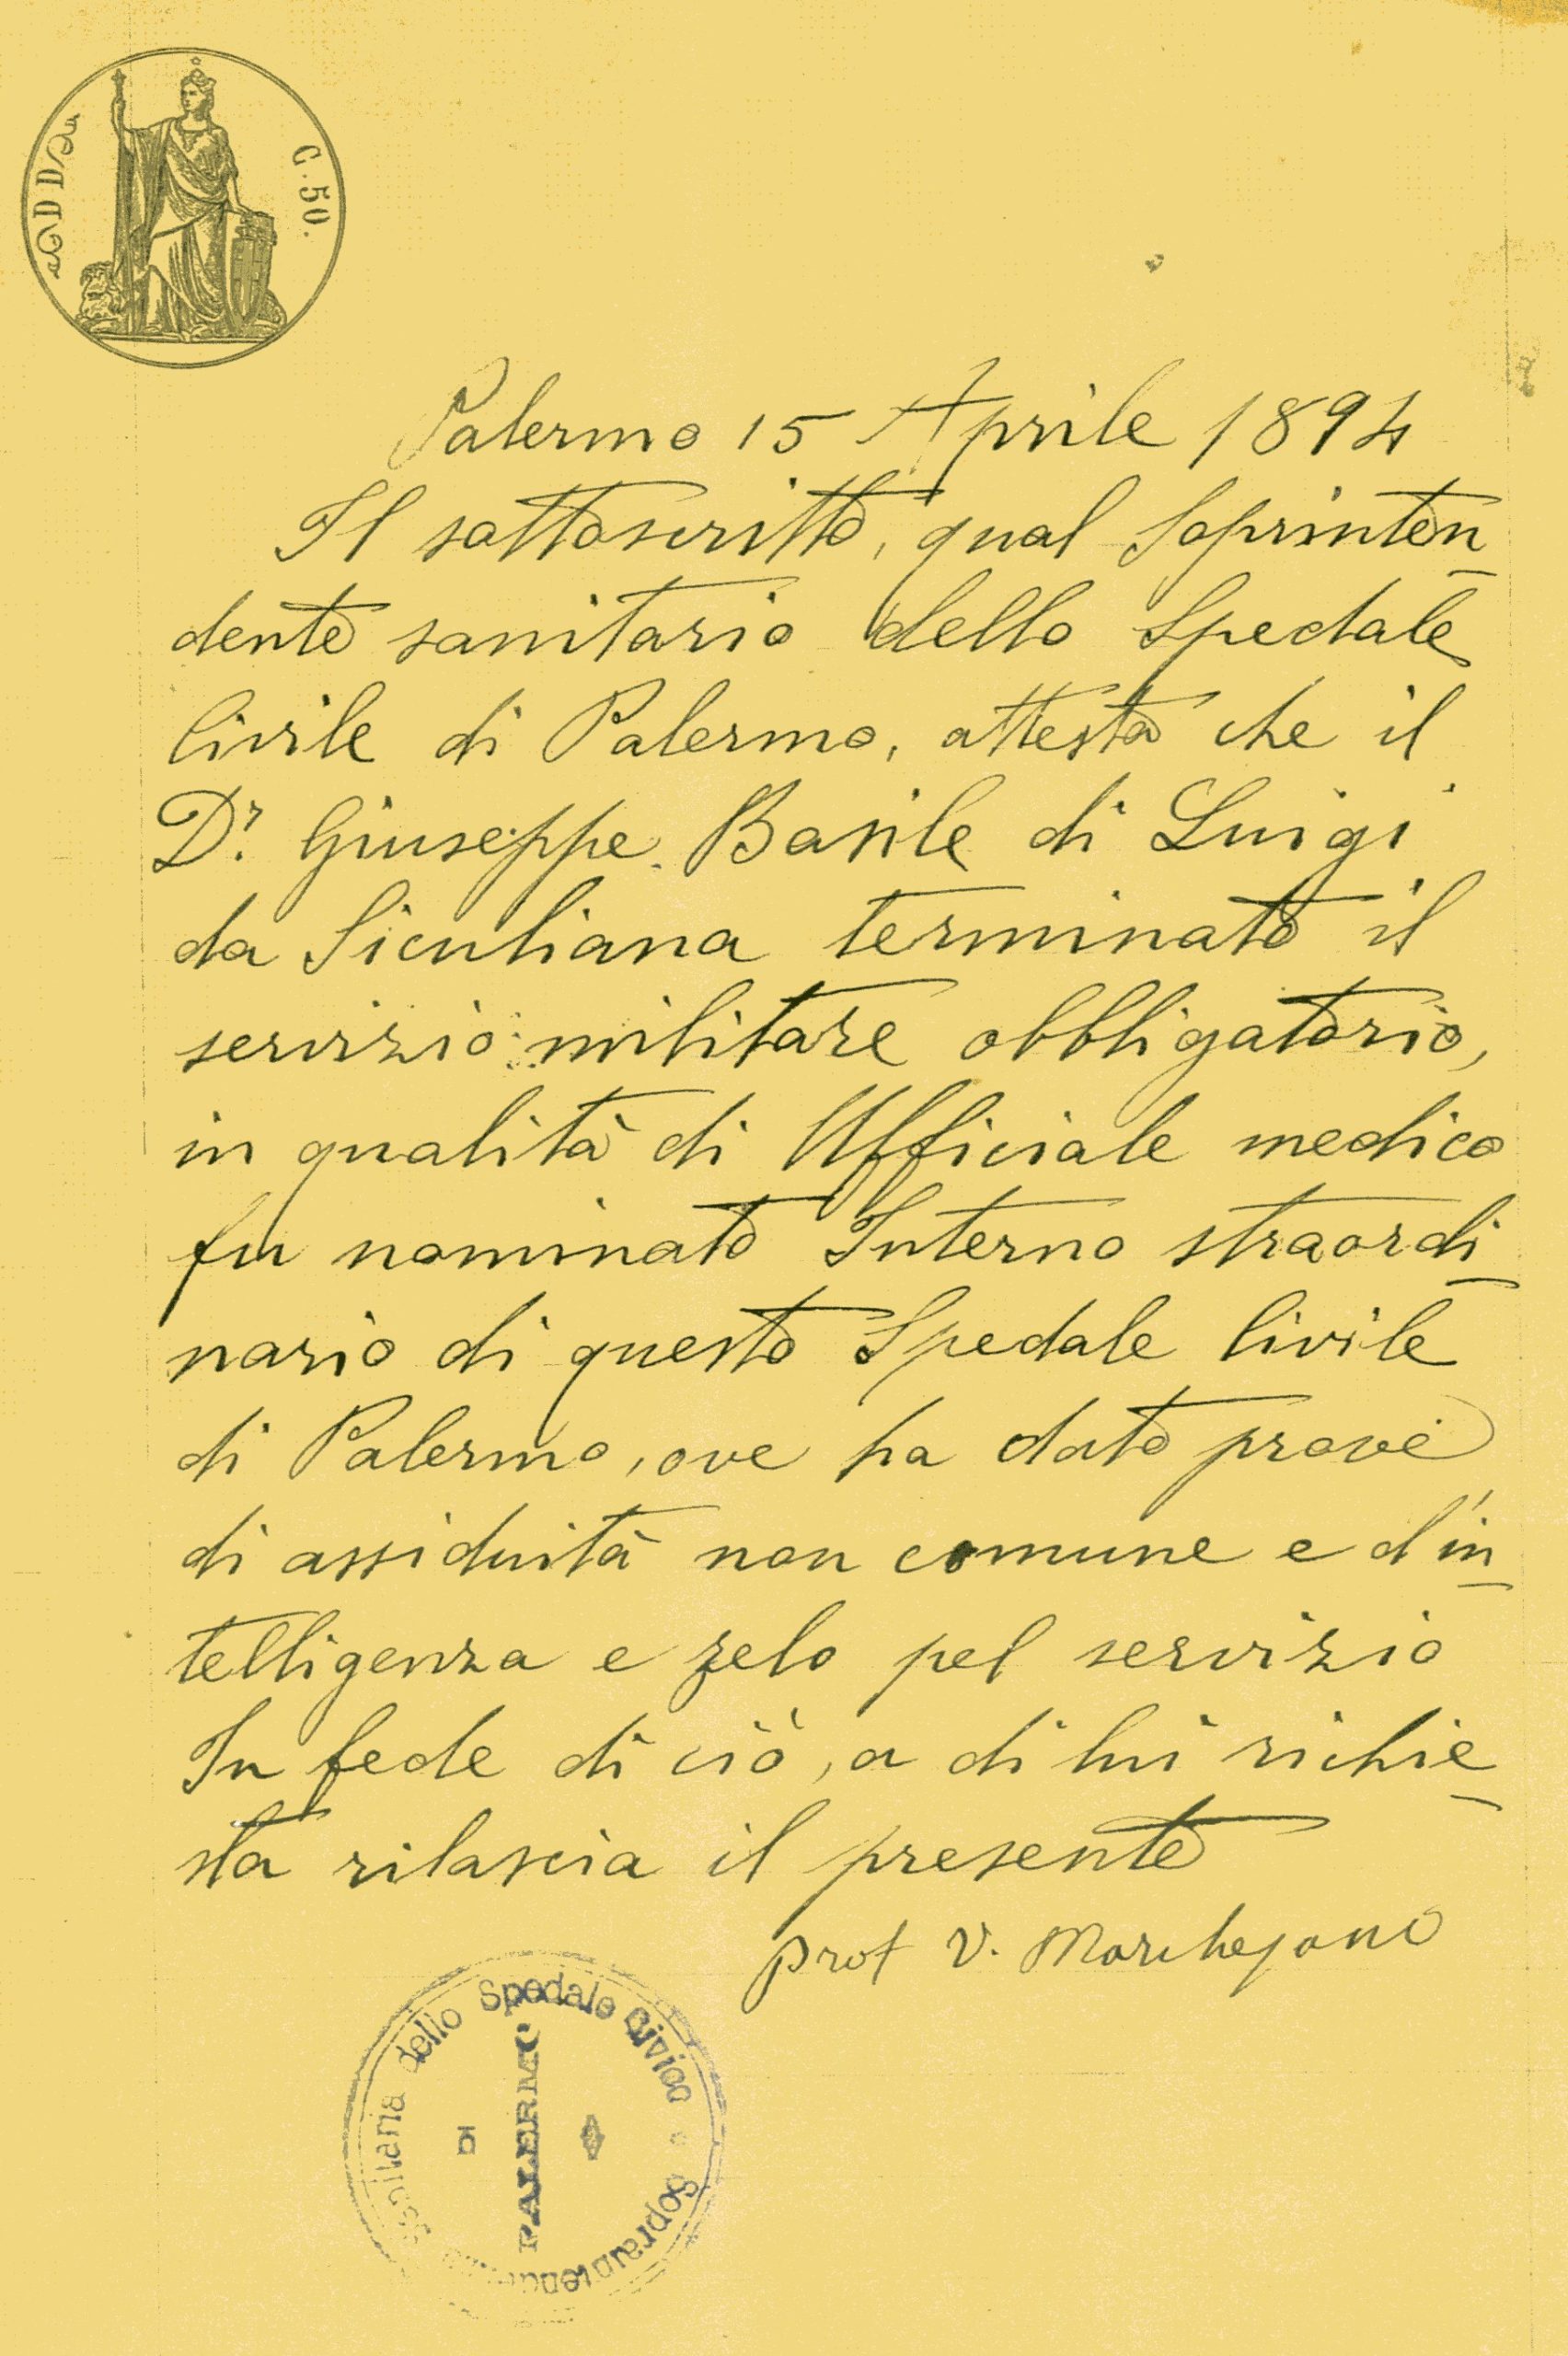 C. 50.
Palermo 15 Aprile 1894
Il sottoscritto, qual Soprinten
dente sanitario dello Spedale
Civile di Palermo, attesta che il
Dr. Giuseppe Basile di Luigi
da Siculiana terminato il
servizio militare obbligatorio,
in qualità di Ufficiale medico
fu nominato Interno straordi
nario di questo Spedale Civile
di Palermo, ove ha dato prove
di assiduità non comune e d'in
telligenza e zelo pel servizio
In fede di ciò, a di lui richie
sta rilascia il presente
prof V. Marchesano
Sopraintendenza Sanitaria dello Spedale Civico
DI
PALERMO